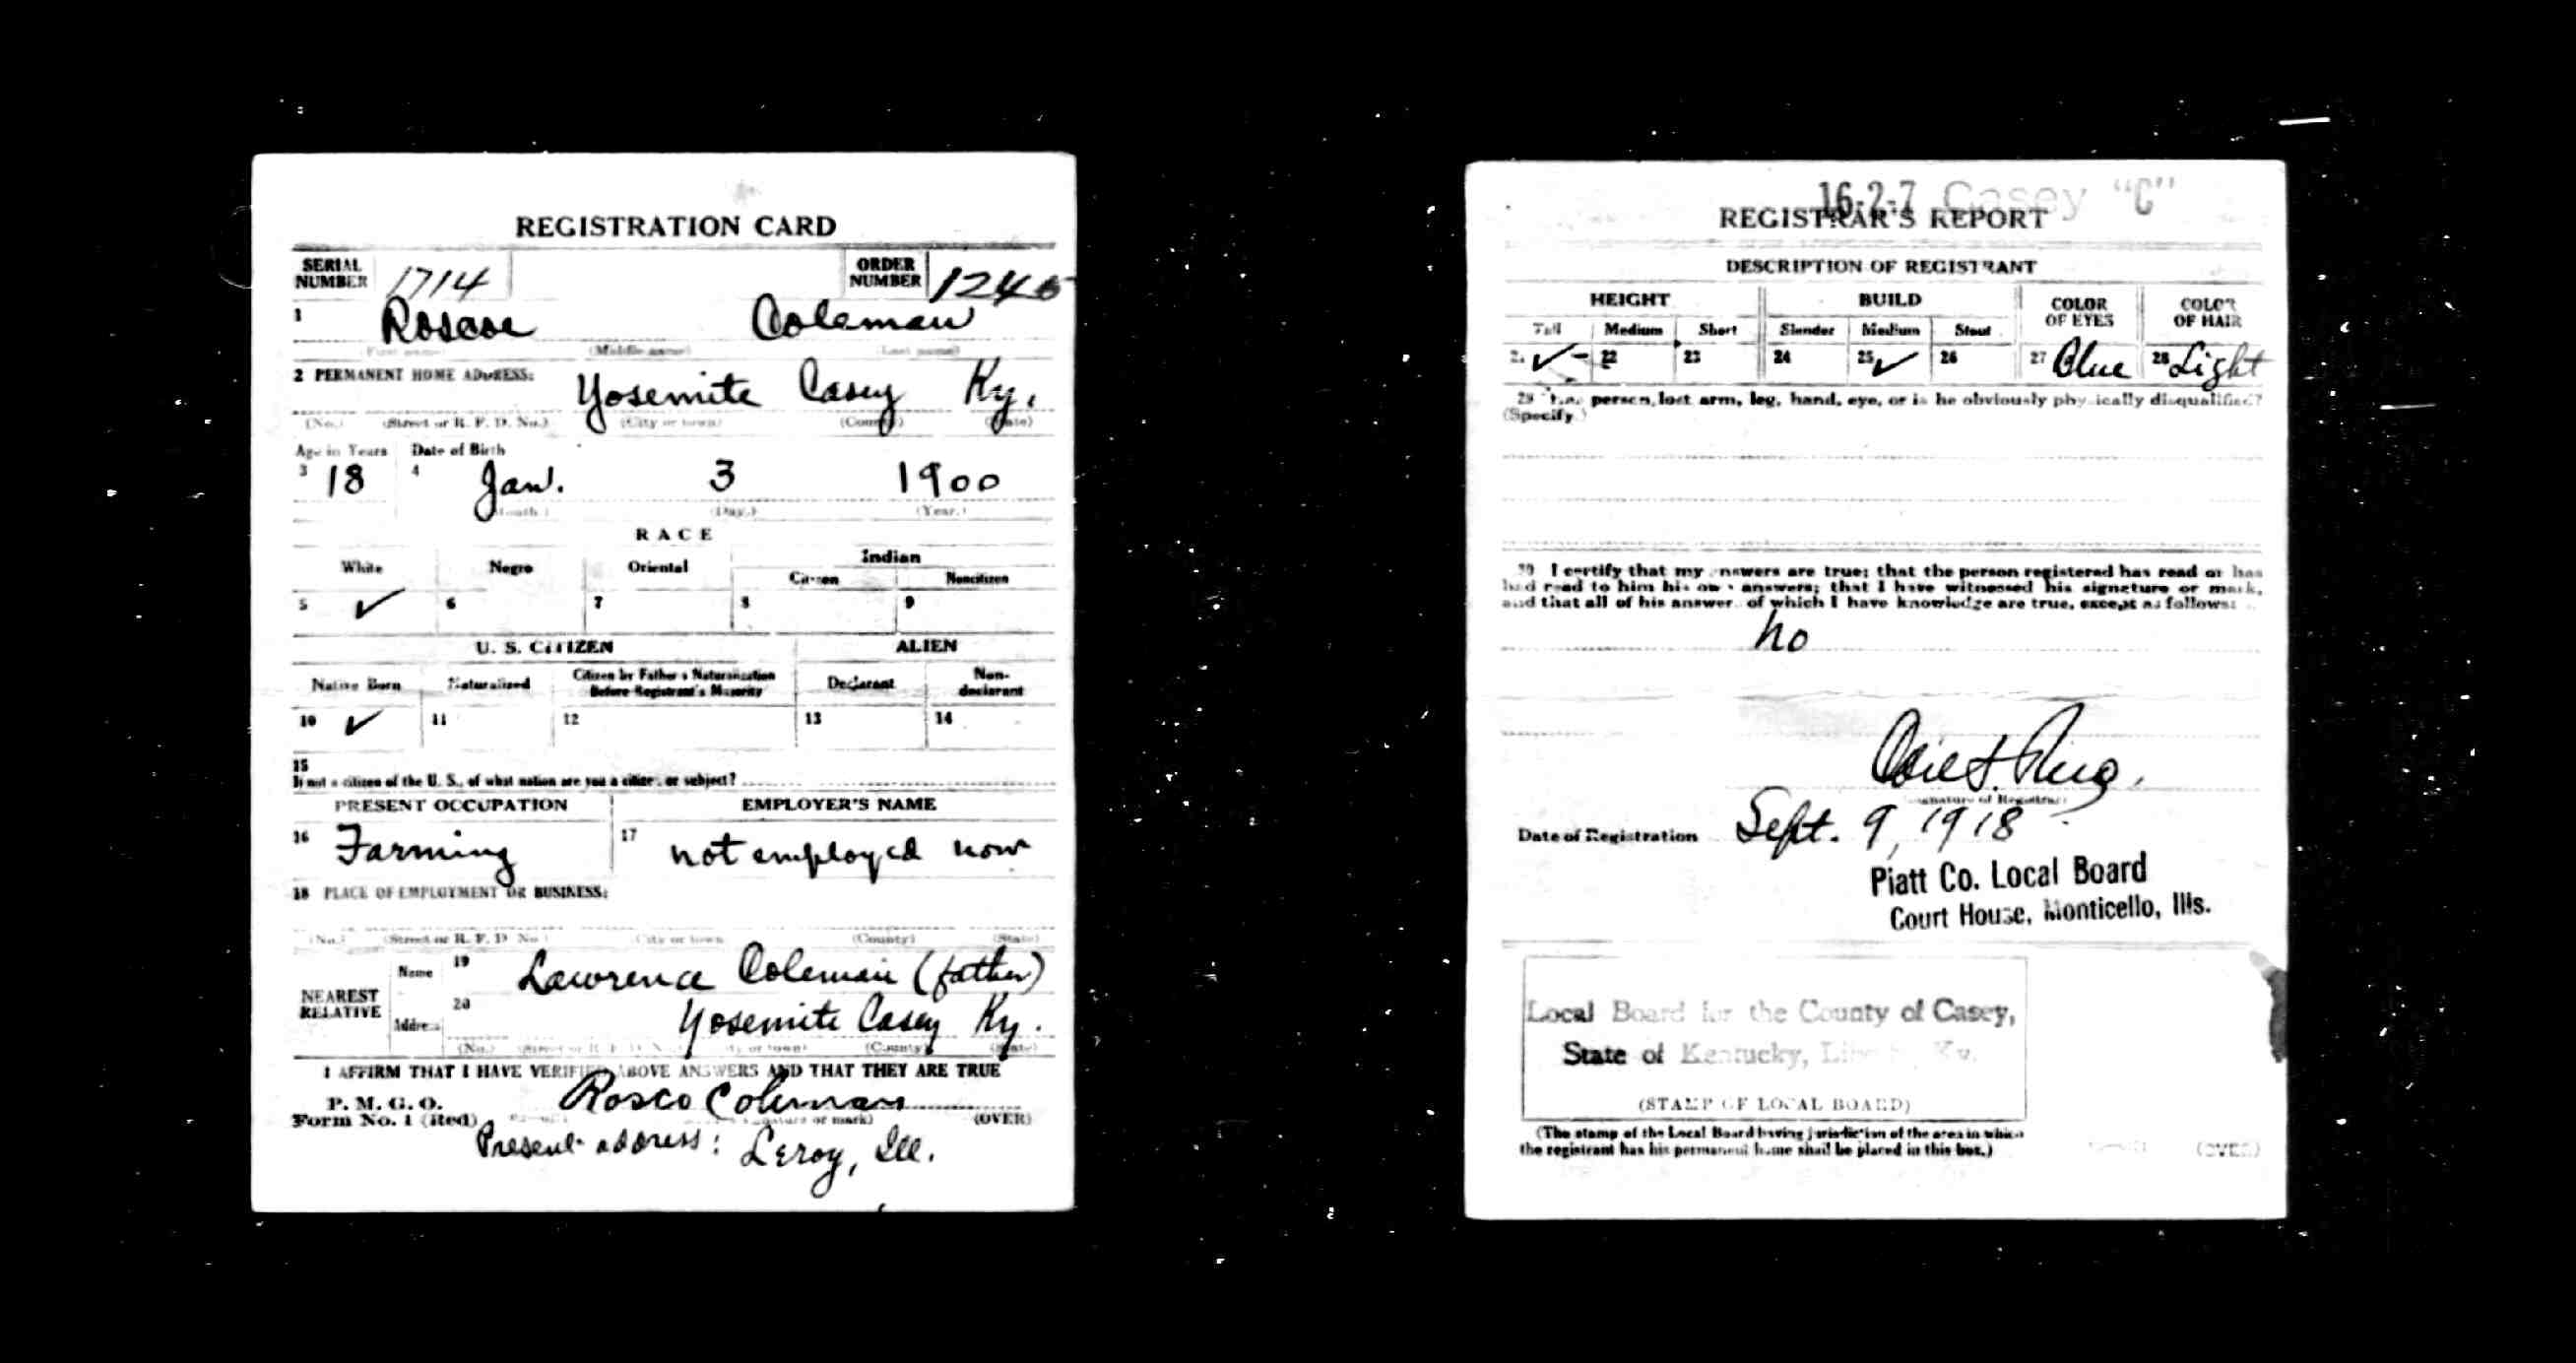 REGISTRATION CARD
SERIAL NUMBER 1714 ORDER NUMBER
1 Roscoe Coleman
(First name) (Middle name) (Last name)
2 PERMANENT HOME ADDRESS: Yosemite Casey Ky.
(No.) (Street or R. F. D. No.) (City or town) (County) (State)
Age in Years Date of Birth
3 18 4 Jan. 3 1900
(Month.) (Day.) (Year.)
RACE
White Negro Oriental Indian
Citizen Noncitizen
5 ✓ 6 7 8 9
U. S. CITIZEN ALIEN
Native Born Naturalized Citizen by Father's Naturalization Before Registrant's Majority Declarant Non-declarant
10 ✓ 11 12 13 14
15
If not a citizen of the U. S., of what nation are you a citizen or subject?
PRESENT OCCUPATION EMPLOYER'S NAME
16 Farming 17 not employed now
18 PLACE OF EMPLOYMENT OR BUSINESS:
(No.) (Street or R. F. D. No.) (City or town) (County) (State)
NEAREST RELATIVE Name 19 Lawrence Coleman (father)
Address 20 Yosemite Casey Ky.
(No.) (Street or R. F. D. No.) (City or town) (County) (State)
I AFFIRM THAT I HAVE VERIFIED ABOVE ANSWERS AND THAT THEY ARE TRUE
P. M. G. O.
Form No. 1 (Red) Rosco Coleman (OVER)
(Signature or mark)
Present address: Leroy, Ill.
16-2-7 Casey "C"
REGISTRAR'S REPORT
DESCRIPTION OF REGISTRANT
HEIGHT BUILD COLOR OF EYES COLOR OF HAIR
Tall Medium Short Slender Medium Stout
21 ✓ 22 23 24 25 ✓ 26 27 Blue 28 Light
29 Has person lost arm, leg, hand, eye, or is he obviously physically disqualified?
(Specify.)
30 I certify that my answers are true; that the person registered has read or has
had read to him his own answers; that I have witnessed his signature or mark,
and that all of his answers of which I have knowledge are true, except as follows:
no
(Signature of Registrar)
Date of Registration Sept. 9, 1918
Piatt Co. Local Board
Court House, Monticello, Ills.
Local Board for the County of Casey,
State of Kentucky, Liberty, Ky.
(STAMP OF LOCAL BOARD)
(The stamp of the Local Board having jurisdiction of the area in which
the registrant has his permanent home shall be placed in this box.)
(OVER)